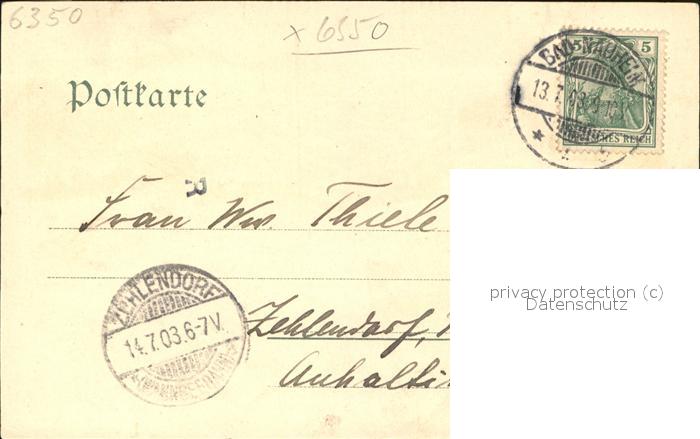 6350
x 6350
5 5
BAD-NAUHEIM
13.7.03.9-10
* 1. *
DEUTSCHES REICH
Poſtkarte
R
Frau Ww. Thiele
privacy protection (c)
Datenschutz
ZEHLENDORF
14.7.03.6-7V.
Zehlendorf,
Anhalti